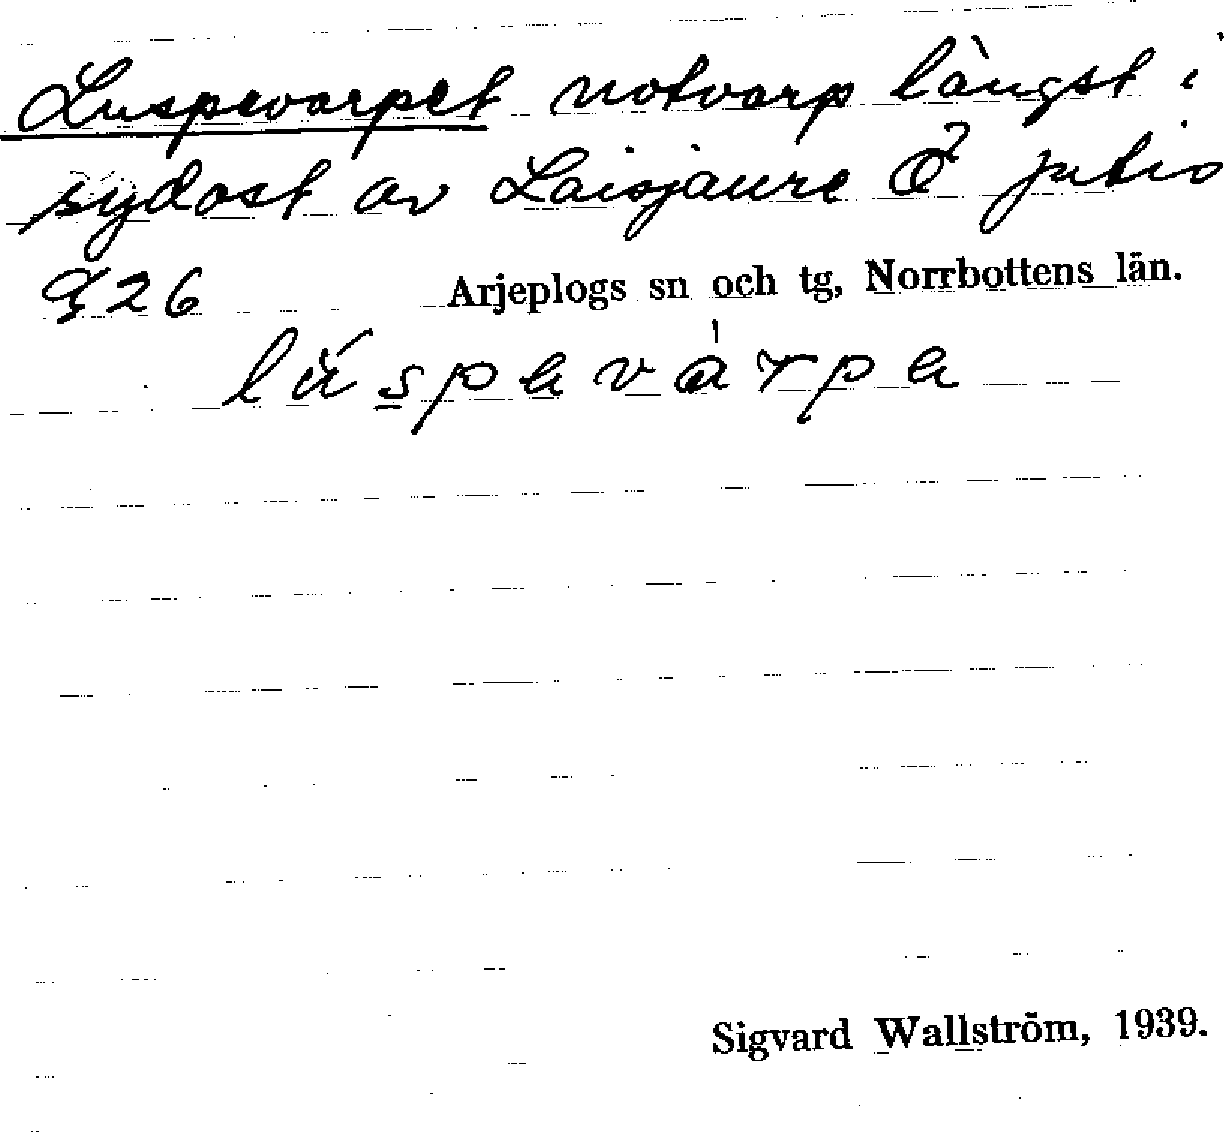 Luspevarpet notvarp längst i
sydost av Laisjaure Ö jutis
§26 Arjeplogs sn och tg, Norrbottens län.
Sigvard Wallström, 1939.